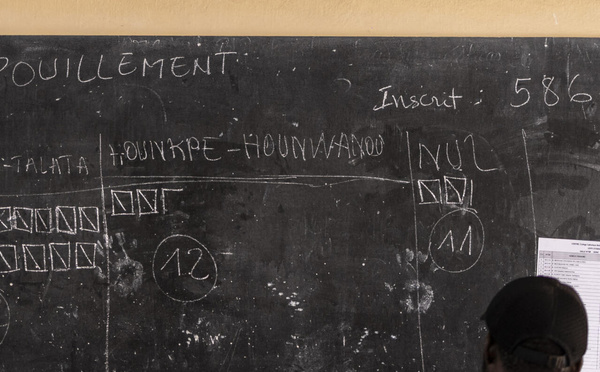 POUILLEMENT
Inscrit : 586
-TALATA
HOUNKPE - HOUNWANOU
NUL
12
11